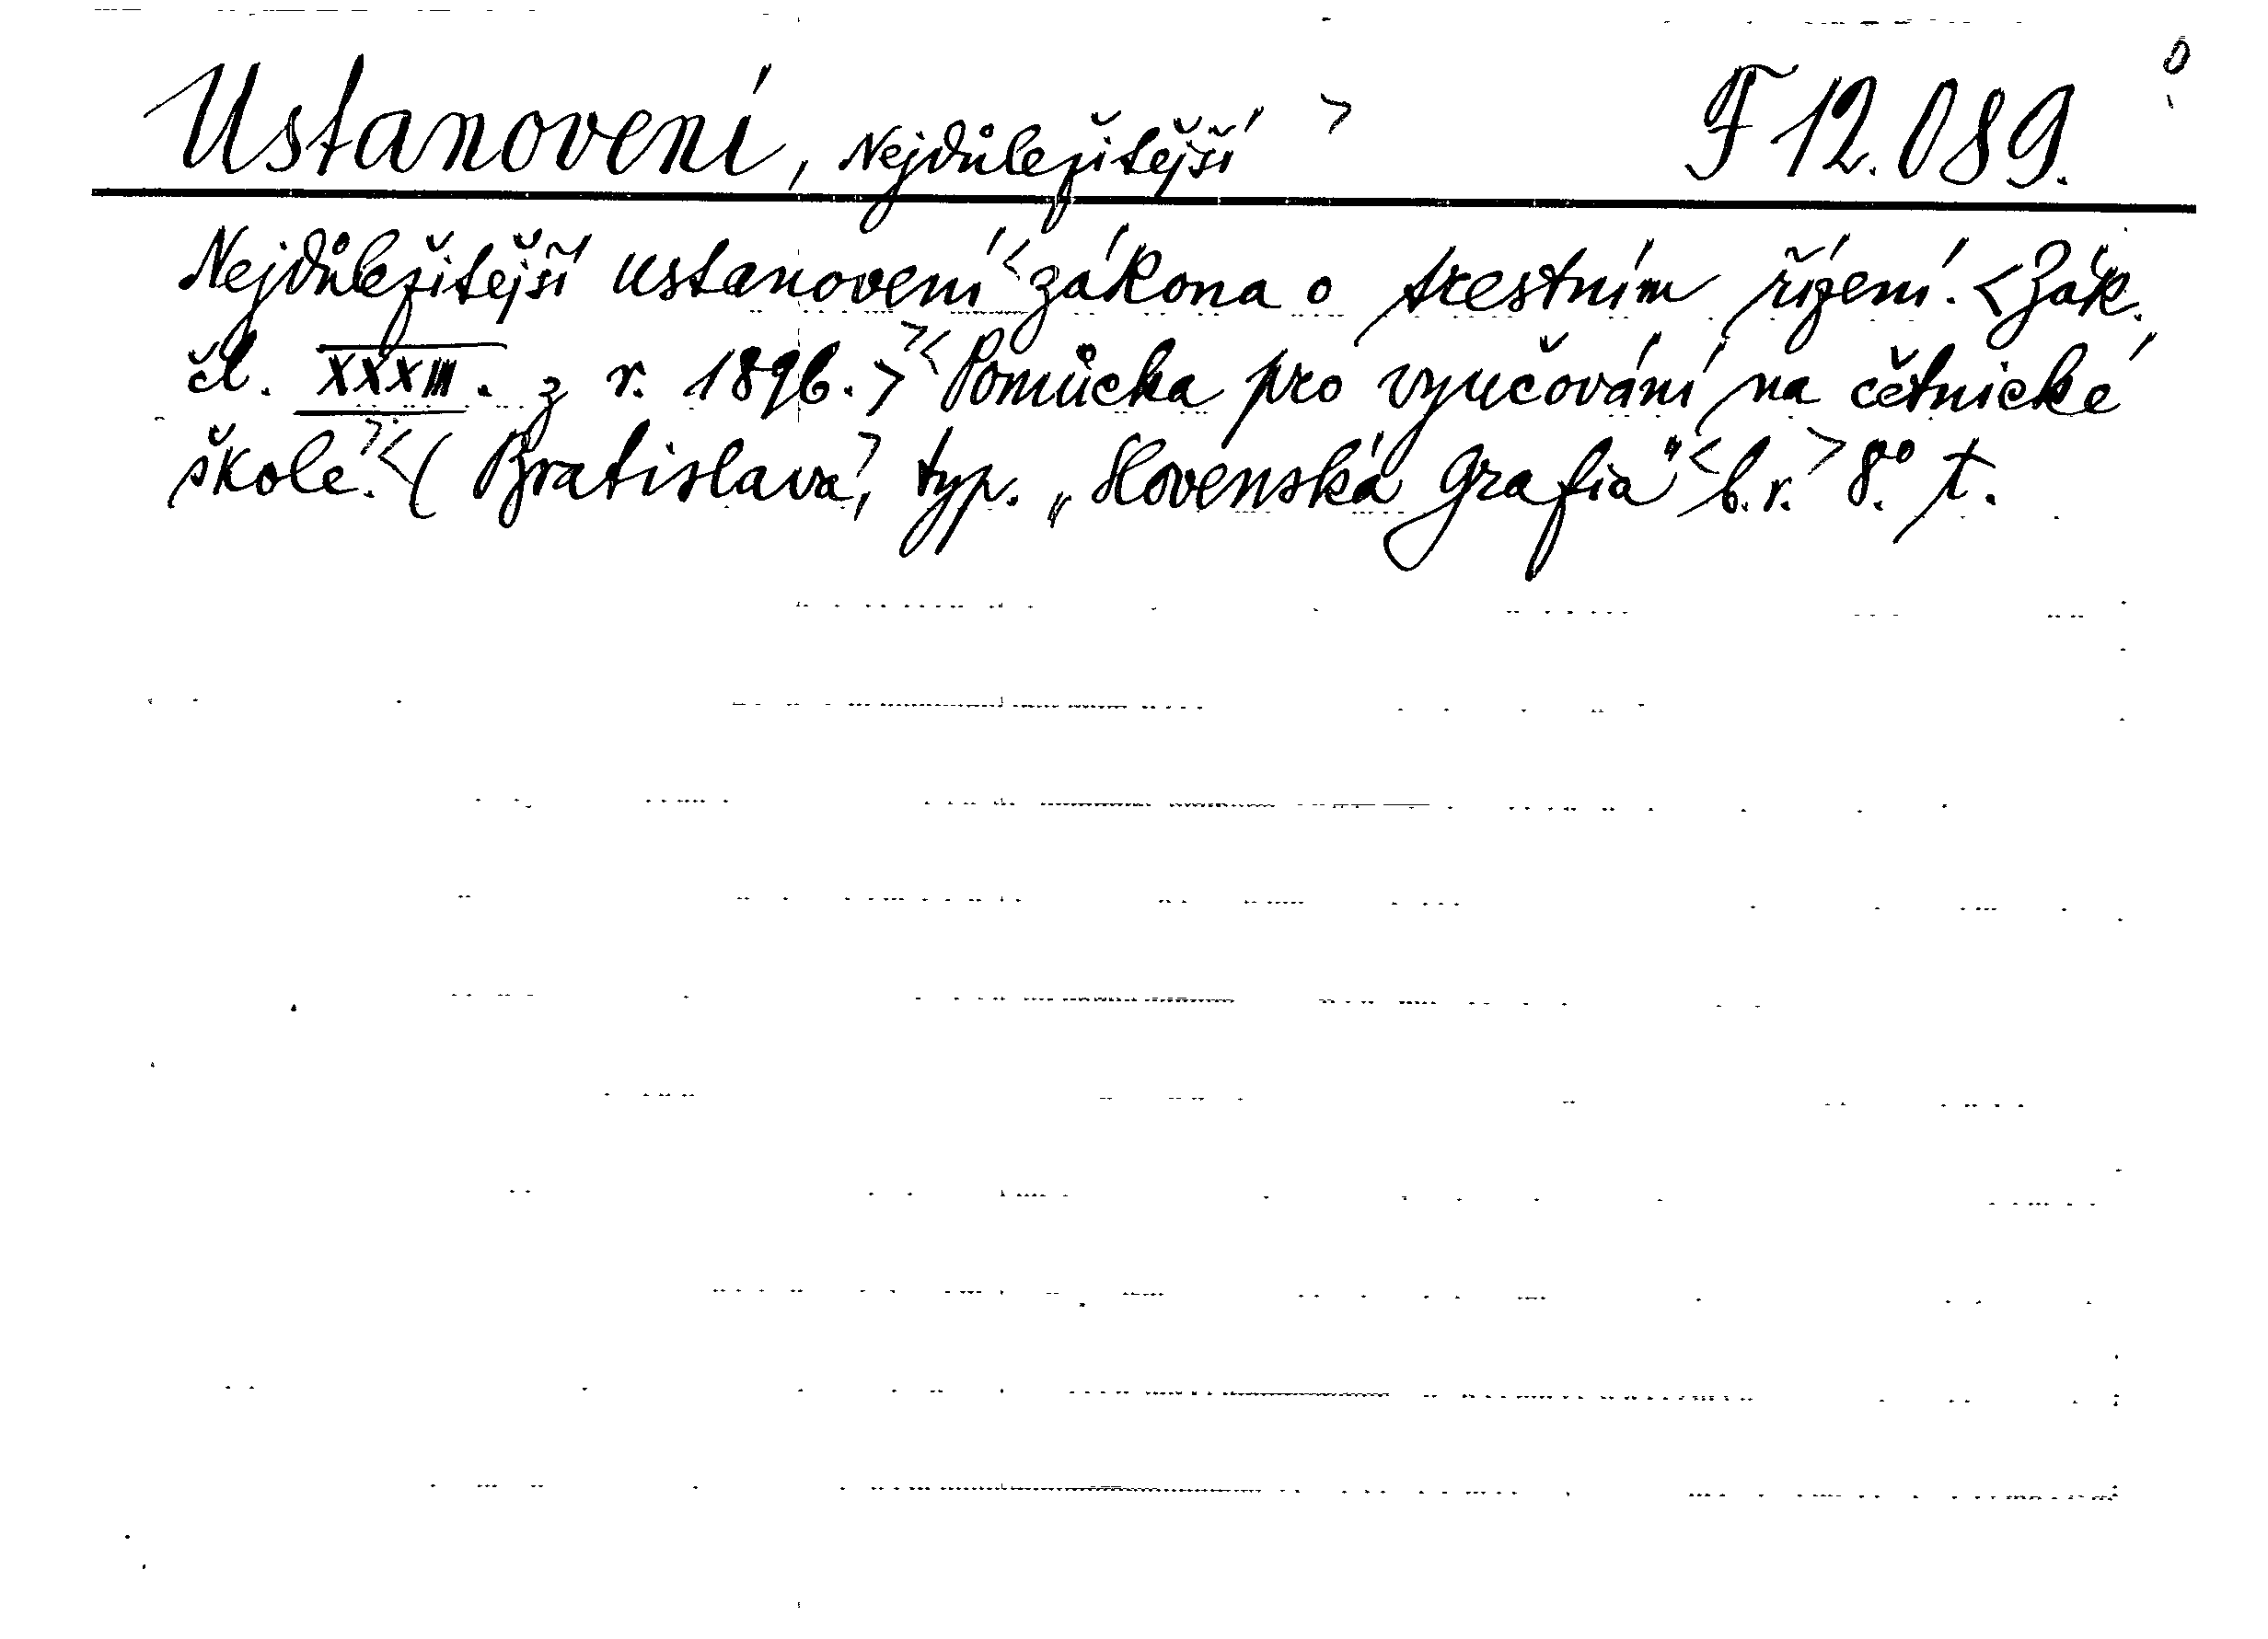 Ustanovení, Nejdůležitější > F 12.089.
Nejdůležitější ustanovení < zákona o trestním řízení. < Zák.
čl. XXXIII. z r. 1896. > > < Pomůcka pro vyučování na četnické
škole. > < ( Bratislava, > typ. „Slovenská Grafia" < b. r. > 8.° t.